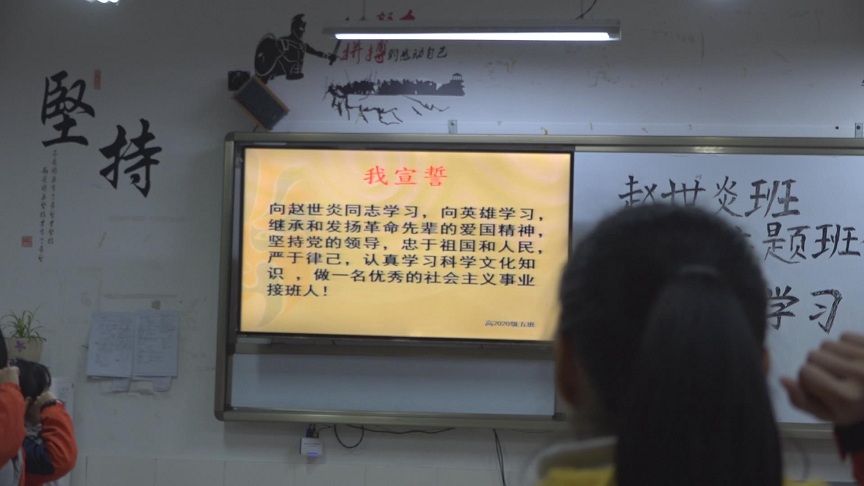 拼搏到感动自己
堅持
我宣誓
向赵世炎同志学习，向英雄学习，
继承和发扬革命先辈的爱国精神，
坚持党的领导，忠于祖国和人民，
严于律己，认真学习科学文化知
识 ，做一名优秀的社会主义事业
接班人！
高2020级五班
赵世炎班
主题班
学习